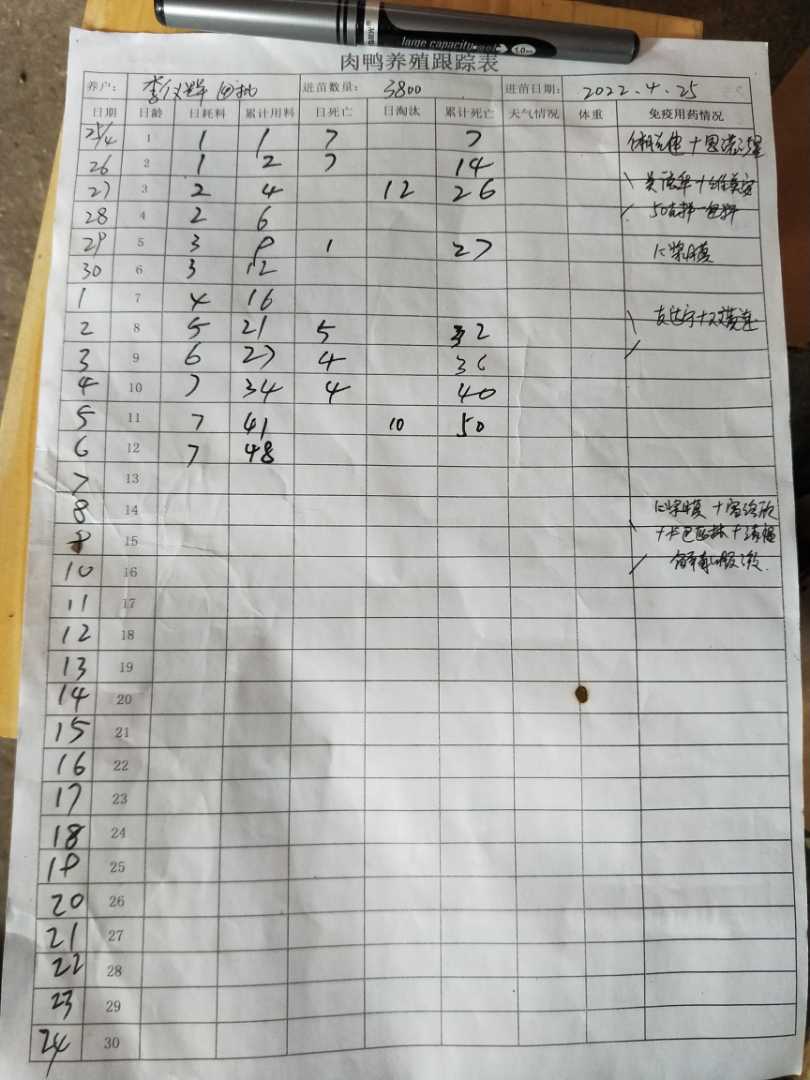 large capacity 1.0
肉鸭养殖跟踪表
养户: 李 进苗数量: 3800 进苗日期: 2022.4.25
日期 日龄 日耗料 累计用料 日死亡 日淘汰 累计死亡 天气情况 体重 免疫用药情况
25/4 1 1 1 7 7
26 2 1 2 7 14
27 3 2 4 12 26
28 4 2 6
29 5 3 9 1 27 浆膜
30 6 3 12
1 7 4 16
2 8 5 21 5 32
3 9 6 27 4 36
4 10 7 34 4 40
5 11 7 41 10 50
6 12 7 48
7 13
8 14 浆膜+
9 15
10 16
11 17
12 18
13 19
14 20
15 21
16 22
17 23
18 24
19 25
20 26
21 27
22 28
23 29
24 30